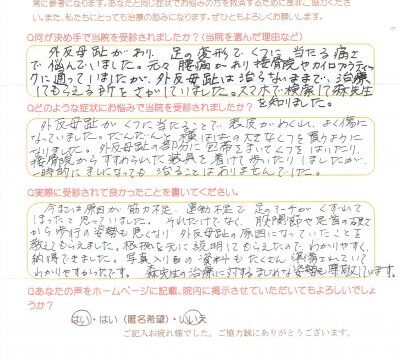 常に参考になります。あなたと同じ症状でお悩みの方を救済するために是非ご協力ください
い。また、私たちにとっても治療の励みになります。ぜひともよろしくお願いします。
Q何が決め手で当院を受診されましたか？(当院を選んだ理由など)
外反母趾があり、足の変形でくつに当たる痛さ
で悩んでいました。元々腰痛があり接骨院やカイロプラティック
に通っていましたが、外反母趾は治らないままで、治療
してもらえる所をさがしていました。スマホで検索して森先生
を知りました。
Qどのような症状にお悩みで当院を受診されましたか？
外反母趾がくつに当たることで、表皮がめくれ、よく傷に
なっていました。だんだんと横はばの大きなくつを買うように
なりました。外反母趾の部分に包帯をまいてくつをはいたり、
接骨院からすすめられた装具を着けて歩いたりしましたが、
一時的にましになっても治ることはありませんでした。
Q実際に受診されて良かったことを書いてください。
今までは原因が筋力不足、運動不足で足のアーチがくずれて
しまったと思っていました。それだけでなく、股関節や足首の硬さ
から歩行の姿勢も悪くなり外反母趾の原因になっていたことを
教えてもらえました。根拠を元に説明してもらえたので、わかりやすく、
納得できました。写真入りの資料もたくさん準備されていて
わかりやすかったです。森先生の治療に対するまじめな姿勢も
Qあなたの声をホームページに記載、院内に掲示させていただいてもよろしいでしょ
うか？
はい・はい（匿名希望）・いいえ
ご記入お疲れ様でした。ご協力誠にありがとうございます。